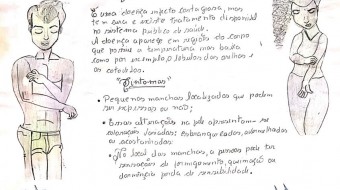 É uma doença infecto contagiosa, mas
tem cura e existe tratamento disponível
no sistema publico de saúde.
A doença aparece em regiões do corpo
que possui a temperatura mais baixa
como por exemplo o lobulo das orelhas os
cotovelos.
"Sintomas"
• Pequenas manchas localizadas que podem
ser expessas ou não;
• Essas alterações na pele apresentam-se
coloração variadas: Esbranquiçadas, avermelhadas
ou acastanhadas.
• No local das manchas, a pessoa pode ter
sensação de formigamento, queimação ou
dormência perda de sensibilidade.